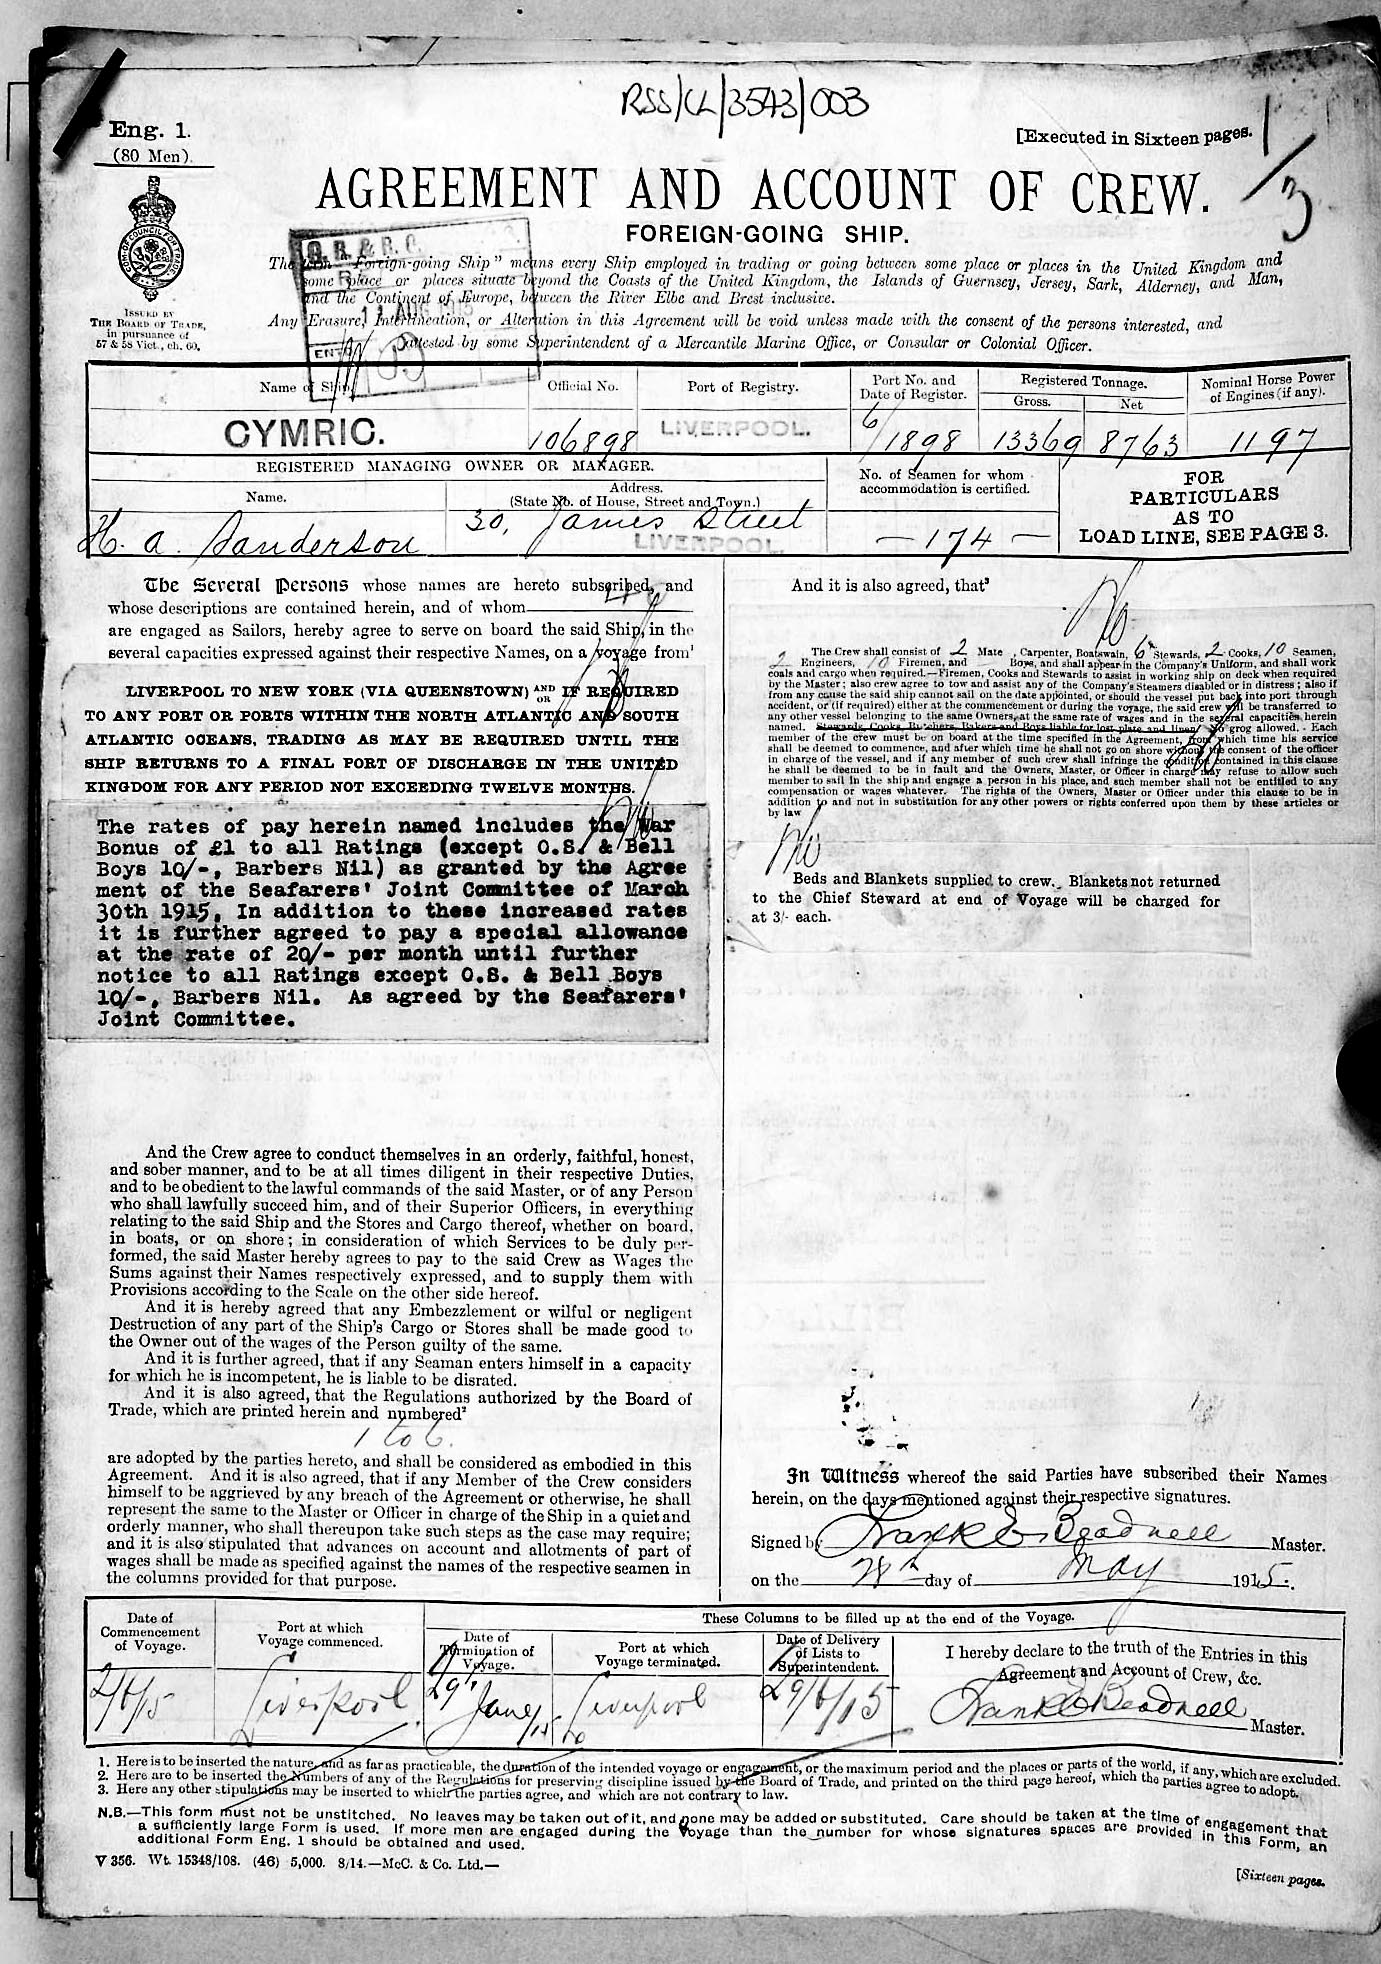 RSS/CL/3543/003
Eng. 1.
(80 Men).
[Executed in Sixteen pages.
1/3
AGREEMENT AND ACCOUNT OF CREW.
FOREIGN-GOING SHIP.
The term "Foreign-going Ship" means every Ship employed in trading or going between some place or places in the United Kingdom and
some place or places situate beyond the Coasts of the United Kingdom, the Islands of Guernsey, Jersey, Sark, Alderney, and Man,
and the Continent of Europe, between the River Elbe and Brest inclusive.
Any Erasure, Interlineation, or Alteration in this Agreement will be void unless made with the consent of the persons interested, and
attested by some Superintendent of a Mercantile Marine Office, or Consular or Colonial Officer.
ISSUED BY
THE BOARD OF TRADE,
in pursuance of
57 & 58 Vict., ch. 60.
11 AUG 1915
Name of Ship.
Official No.
Port of Registry.
Port No. and
Date of Register.
Registered Tonnage.
Gross.
Net
Nominal Horse Power
of Engines (if any).
CYMRIC.
106898
LIVERPOOL.
6/1898
13369
8763
1197
REGISTERED MANAGING OWNER OR MANAGER.
Name.
Address.
(State No. of House, Street and Town.)
No. of Seamen for whom
accommodation is certified.
FOR
PARTICULARS
AS TO
LOAD LINE, SEE PAGE 3.
H. A. Sanderson
30, James Street
LIVERPOOL.
— 174 —
The Several Persons whose names are hereto subscribed, and
whose descriptions are contained herein, and of whom
are engaged as Sailors, hereby agree to serve on board the said Ship, in the
several capacities expressed against their respective Names, on a voyage from¹
LIVERPOOL TO NEW YORK (VIA QUEENSTOWN) AND OR IF REQUIRED
TO ANY PORT OR PORTS WITHIN THE NORTH ATLANTIC AND SOUTH
ATLANTIC OCEANS, TRADING AS MAY BE REQUIRED UNTIL THE
SHIP RETURNS TO A FINAL PORT OF DISCHARGE IN THE UNITED
KINGDOM FOR ANY PERIOD NOT EXCEEDING TWELVE MONTHS.
The rates of pay herein named includes the War
Bonus of £1 to all Ratings (except O.S. & Bell
Boys 10/-, Barbers Nil) as granted by the Agree
ment of the Seafarers' Joint Committee of March
30th 1915, In addition to these increased rates
it is further agreed to pay a special allowance
at the rate of 20/- per month until further
notice to all Ratings except O.S. & Bell Boys
10/-, Barbers Nil. As agreed by the Seafarers'
Joint Committee.
And the Crew agree to conduct themselves in an orderly, faithful, honest,
and sober manner, and to be at all times diligent in their respective Duties,
and to be obedient to the lawful commands of the said Master, or of any Person
who shall lawfully succeed him, and of their Superior Officers, in everything
relating to the said Ship and the Stores and Cargo thereof, whether on board,
in boats, or on shore; in consideration of which Services to be duly per-
formed, the said Master hereby agrees to pay to the said Crew as Wages the
Sums against their Names respectively expressed, and to supply them with
Provisions according to the Scale on the other side hereof.
And it is hereby agreed that any Embezzlement or wilful or negligent
Destruction of any part of the Ship's Cargo or Stores shall be made good to
the Owner out of the wages of the Person guilty of the same.
And it is further agreed, that if any Seaman enters himself in a capacity
for which he is incompetent, he is liable to be disrated.
And it is also agreed, that the Regulations authorized by the Board of
Trade, which are printed herein and numbered²
1 to 6.
are adopted by the parties hereto, and shall be considered as embodied in this
Agreement. And it is also agreed, that if any Member of the Crew considers
himself to be aggrieved by any breach of the Agreement or otherwise, he shall
represent the same to the Master or Officer in charge of the Ship in a quiet and
orderly manner, who shall thereupon take such steps as the case may require;
and it is also stipulated that advances on account and allotments of part of
wages shall be made as specified against the names of the respective seamen in
the columns provided for that purpose.
And it is also agreed, that³
The Crew shall consist of 2 Mate , Carpenter, Boatswain, 6 Stewards, 2 Cooks, 10 Seamen,
2 Engineers, 10 Firemen, and Boys, and shall appear in the Company's Uniform, and shall work
coals and cargo when required.—Firemen, Cooks and Stewards to assist in working ship on deck when required
by the Master; also crew agree to tow and assist any of the Company's Steamers disabled or in distress; also if
from any cause the said ship cannot sail on the date appointed, or should the vessel put back into port through
accident, or (if required) either at the commencement or during the voyage, the said crew will be transferred to
any other vessel belonging to the same Owners, at the same rate of wages and in the several capacities herein
named. Stewards, Cooks, Butchers, Bakers and Boys liable for lost plate and linen. No grog allowed. - Each
member of the crew must be on board at the time specified in the Agreement, from which time his service
shall be deemed to commence, and after which time he shall not go on shore without the consent of the officer
in charge of the vessel, and if any member of such crew shall infringe the conditions contained in this clause
he shall be deemed to be in fault and the Owners, Master, or Officer in charge may refuse to allow such
member to sail in the ship and engage a person in his place, and such member shall not be entitled to any
compensation or wages whatever. The rights of the Owners, Master or Officer under this clause to be in
addition to and not in substitution for any other powers or rights conferred upon them by these articles or
by law
Beds and Blankets supplied to crew. Blankets not returned
to the Chief Steward at end of Voyage will be charged for
at 3/- each.
In Witness whereof the said Parties have subscribed their Names
herein, on the days mentioned against their respective signatures.
Signed by Frank E Beadnell Master.
on the 28th day of May 1915.
Date of
Commencement
of Voyage.
Port at which
Voyage commenced.
These Columns to be filled up at the end of the Voyage.
Date of
Termination of
Voyage.
Port at which
Voyage terminated.
Date of Delivery
of Lists to
Superintendent.
I hereby declare to the truth of the Entries in this
Agreement and Account of Crew, &c.
2/6/15
Liverpool
29 June/15
Liverpool
29/6/15
Frank E Beadnell
Master.
1. Here is to be inserted the nature, and as far as practicable, the duration of the intended voyage or engagement, or the maximum period and the places or parts of the world, if any, which are excluded.
2. Here are to be inserted the Numbers of any of the Regulations for preserving discipline issued by the Board of Trade, and printed on the third page hereof, which the parties agree to adopt.
3. Here any other stipulations may be inserted to which the parties agree, and which are not contrary to law.
N.B.—This form must not be unstitched. No leaves may be taken out of it, and none may be added or substituted. Care should be taken at the time of engagement that
a sufficiently large Form is used. If more men are engaged during the Voyage than the number for whose signatures spaces are provided in this Form, an
additional Form Eng. 1 should be obtained and used.
V 356. Wt. 15348/108. (46) 5,000. 8/14.—McC. & Co. Ltd.—
[Sixteen pages.